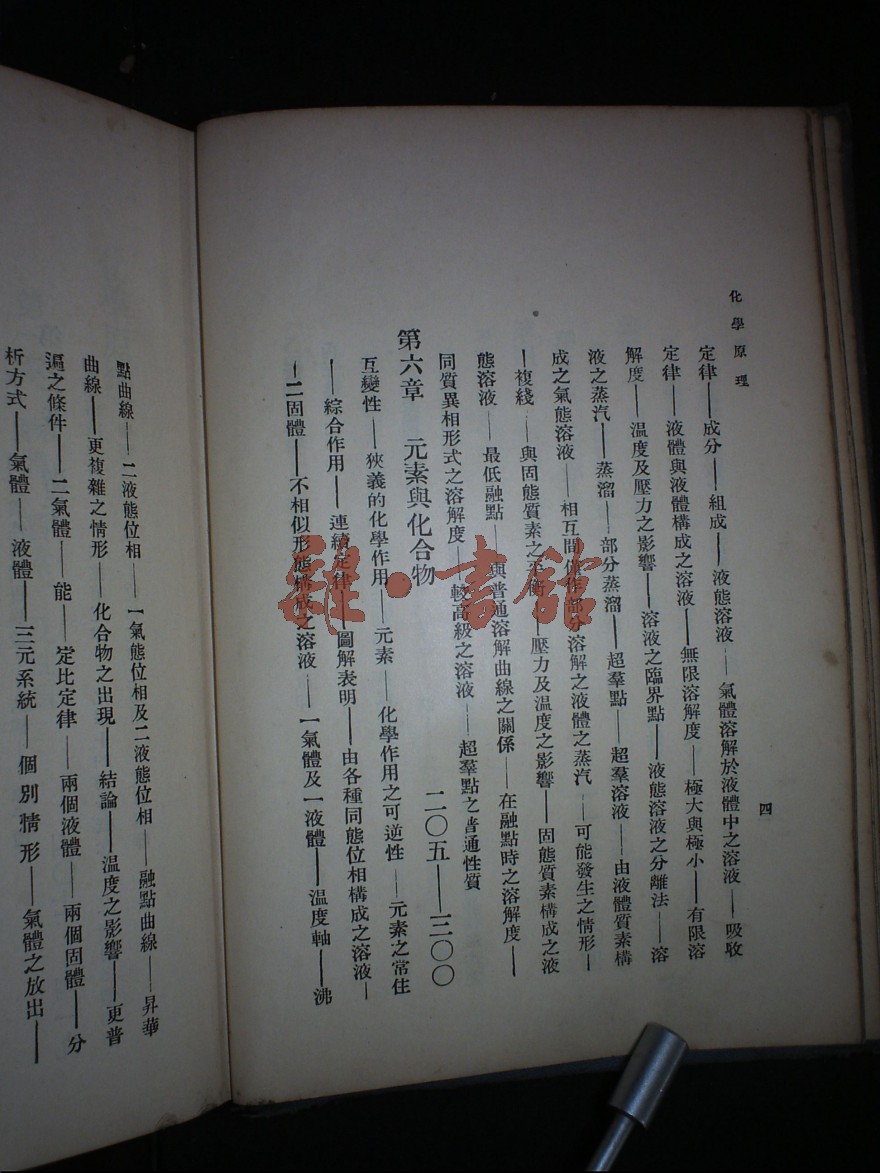 化學原理
四
定律——成分——組成——液態溶液——氣體溶解於液體中之溶液——吸收
定律——液體與液體構成之溶液——無限溶解度——極大與極小——有限溶
解度——溫度及壓力之影響——溶液之臨界點——液態溶液之分離法——溶
液之蒸汽——蒸溜——部分蒸溜——超羣點——超羣溶液——由液體質素構
成之氣態溶液——相互間僅作部分溶解之液體之蒸汽——可能發生之情形—
—複綫——與固態質素之平衡——壓力及溫度之影響——固態質素構成之液
態溶液——最低融點——與普通溶解曲線之關係——在融點時之溶解度——
同質異相形式之溶解度——較高級之溶液——超羣點之普通性質
第六章 元素與化合物 二〇五——三〇〇
互變性——狹義的化學作用——元素——化學作用之可逆性——元素之常住
——綜合作用——連續定律——圖解表明——由各種同態位相構成之溶液—
—二固體——不相似形態構成之溶液——一氣體及一液體——溫度軸——沸
點曲線——二液態位相——一氣態位相及二液態位相——融點曲線——昇華
曲線——更複雜之情形——化合物之出現——結論——溫度之影響——更普
遍之條件——二氣體——能——定比定律——兩個液體——兩個固體——分
析方式——氣體——液體——三元系統——個別情形——氣體之放出——
雜·書館